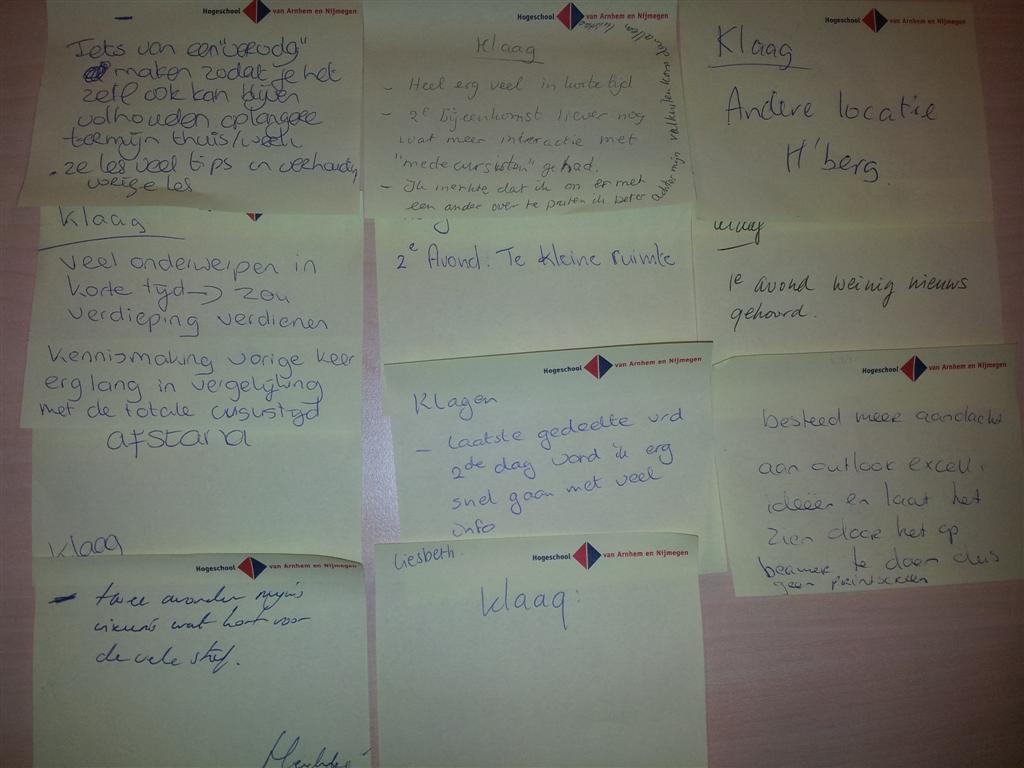 Hogeschool van Arnhem en Nijmegen
Iets van een
maken zodat je het
zelf ook kan blijven
volhouden op langere
termijn thuis/werk
2e les veel tips in verhouding
vorige les
Hogeschool van Arnhem en Nijmegen
Klaag
- Heel erg veel in korte tijd
- 2e bijeenkomst liever nog
wat meer interactie met
"mede cursisten" gehad.
- Ik merkte dat ik om er met
een ander over te praten ik beter
door mijn valkuilen kom
Hogeschool van Arnhem en Nijmegen
Klaag
Andere locatie
H'berg
Klaag
veel onderwerpen in
korte tijd → zou
verdieping verdienen
Kennismaking vorige keer
erg lang in vergelijking
met de totale cursustijd
2e Avond: Te kleine ruimte
1e avond weinig nieuws
gehoord.
afstand
Klaag
Hogeschool van Arnhem en Nijmegen
Klagen
- laatste gedeelte vrd
2de dag vond ik erg
snel gaan met veel
info
Hogeschool van Arnhem en Nijmegen
besteed meer aandacht
aan outlook excel,
ideeën en laat het
zien door het op
beamer te doen dus
geen printscreen
Hogeschool van Arnhem en Nijmegen
- twee avonden mijns
inziens wat kort voor
de vele stof.
Liesbeth.
Hogeschool van Arnhem en Nijmegen
Klaag: